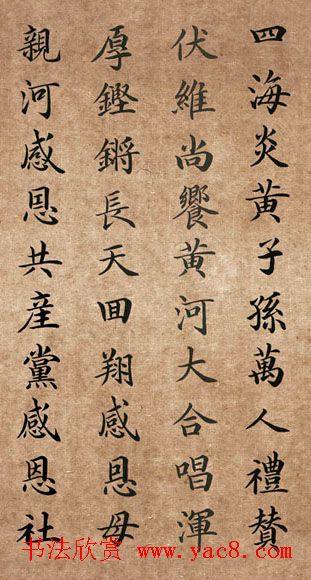 四海炎黄子孫萬人禮贊
伏維尚饗黄河大合唱渾
厚鏗鏘長天回翔感恩母
親河感恩共産黨感恩社
书法欣赏 www.yac8.com